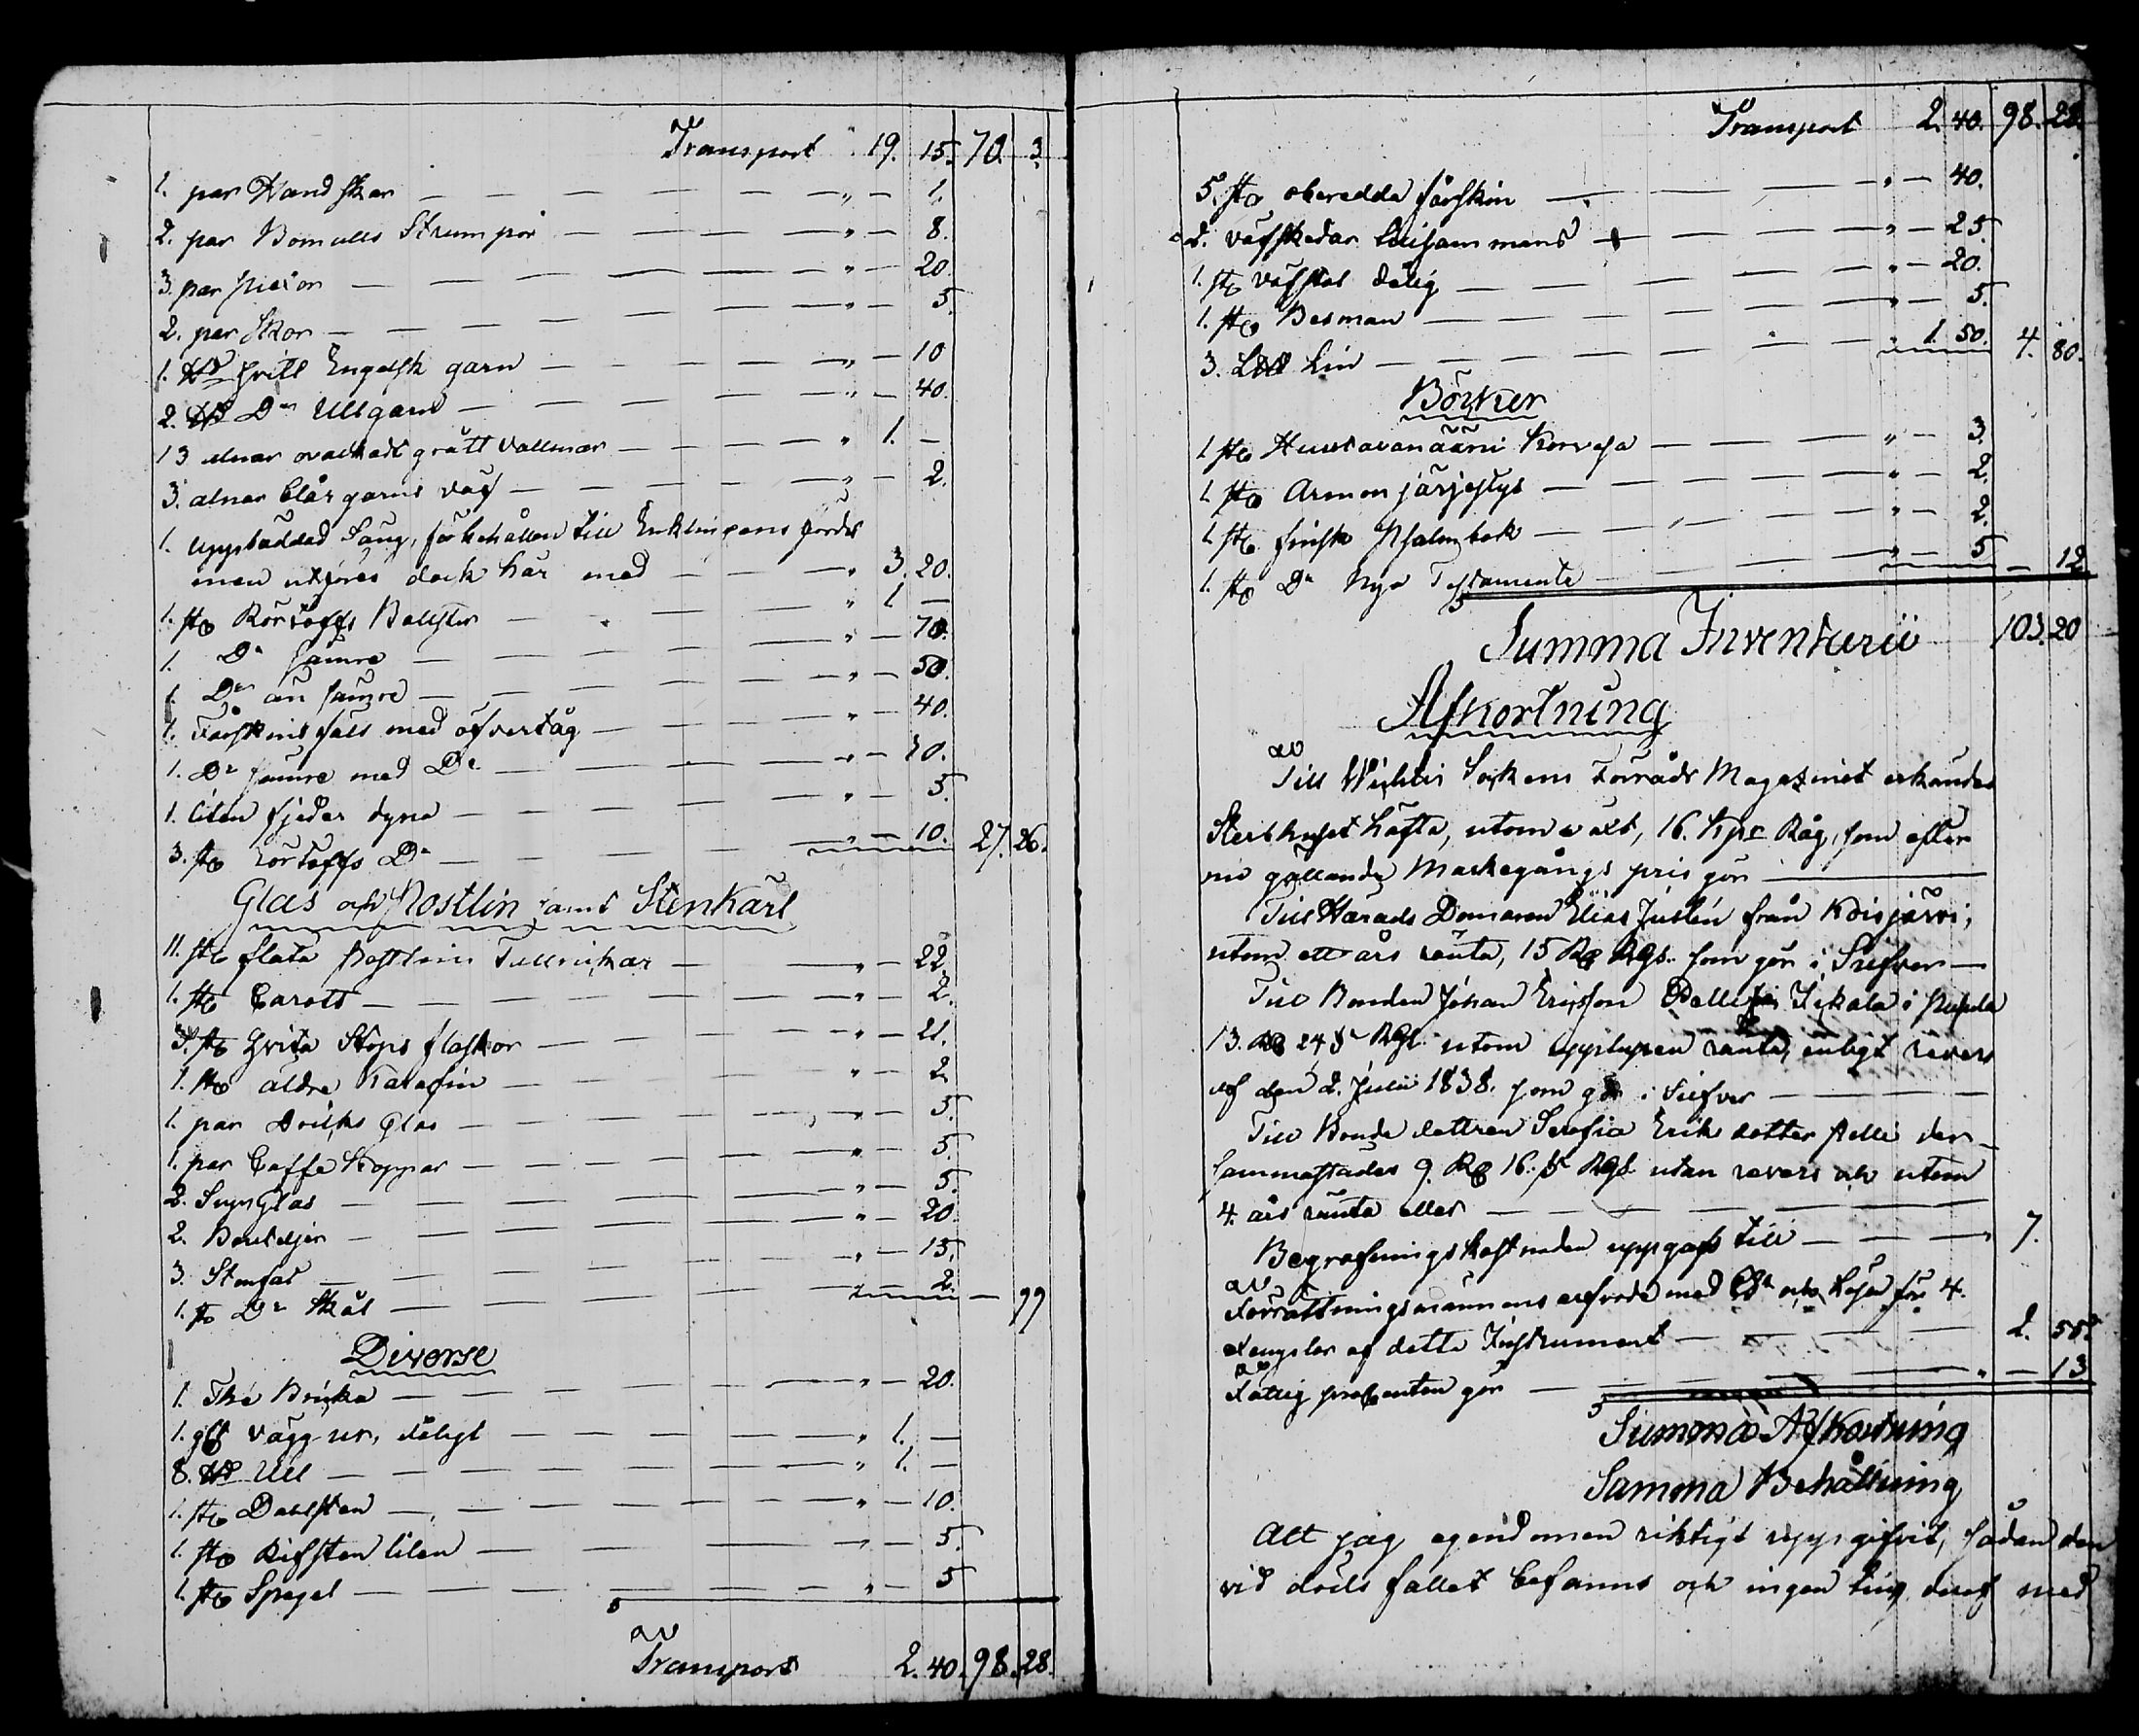 Transport 19. 15. 70. 3.
1. par Handskar — " — 1.
2. par Bomulls Strumpor — " — 8.
3. par — " — 20.
2. par Skor — 5.
1. ℔ hvitt Engelsk garn — " — 10
2. ℔ Do Ullgarn — " — 40.
13 alnar ovalkadt grått Vallmar — " 1. —
3. alnar blårgarns väf — " — 2.
1. uppbäddad Säng, förbehållen till Enklingens fördel
men utföres dock här med — " 3. 20.
1. st Bolster — " 1. —
1. Do sämre — " — 70.
1. Do än sämre — " — 50.
1. Fårskins fäll med öfvertåg — " — 40.
1. Do sämre med Do — " — 20.
1. liten fjeder dyna — " — 5.
3. st Do — " — 10. 27. 26.
Glas och Postlin samt Stenkärl
11. st flata Postlins Tallrikar — " — 22.
1. st Carott — " — 2.
3. st hvita Stops flaskor — " — 21.
1. st äldre Karafin — " — 2.
1. par Dricks Glas — " — 5.
1. par Caffe Koppar — " — 5.
2. Sup Glas — " — 5.
2. Bouteljer — " — 20.
3. Stenfat — " — 15.
1. st Do Skål — " — 2. — 99
Diverse
1. Thé Bricka — " — 20.
1. st vägg ur, dåligt — " 1. —
8. ℔ Ull — " 1. —
1. st Dahlsten — " — 10.
1. st Rifsten liten — " — 5.
1. st Spegel — " — 5
Transport 2. 40. 98. 28.
Transport 2. 40. 98. 28.
5. st oberedda fårskin — " — 40.
2. väfskedar tillsammans — " — 25.
1. st väfstol dålig — " — 20.
1. st Besman — " — 5.
3. L℔ Lin — " 1. 50. 4. 80.
Böcker
1 st Huutavanääni Korvesa — " — 3.
1. st Armon järjestys — " — 2.
1. st finsk Psalmbok — " — 2.
1. st Do Nya Testamente — " — 5 — 12
Summa Inventarii 103. 20
Afkortning
Till Wichtis Sockens Förråds Magazinet erkändes
Sterbhuset häfta, utom växt, 16. Kpr Råg, som efter
nu gällande Markegångs pris gör —
Till Härads Domaren Elias Juslén från Koisjärvi,
utom ett års ränta, 15 R Rgs. som gör i Silfver —
Till Bonden Johan Ericsson i
13. R 24 s Rgs. utom upplupen ränta, enligt revers
af den 2. Julii 1838. som gör i Silfver —
Till Bonde dottren Serafia Eriks dotter der-
sammastädes 9. R 16. s Rgs. utan revers och utom
4. års ränta eller —
Begrafningskostnaden uppgafs till — 7.
Förrättningsmannens arfvode med och lösen för 4.
Exemplar af detta Instrument — 2. 58
Fattig procenten gör — " — 13
Summa Afkortning
Samma Behållning
Att jag egendomen riktigt uppgifvit, sådan den
vid döds fallet befanns och ingen ting med